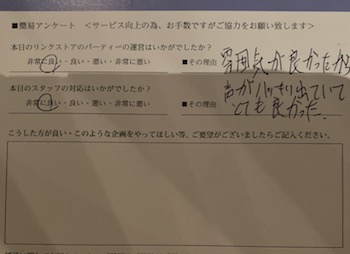 ■簡易アンケート ＜サービス向上の為、お手数ですがご協力をお願い致します＞
本日のリンクストアのパーティーの運営はいかがでしたか？
非常に良い・良い・悪い・非常に悪い ■その理由 雰囲気が良かったから
本日のスタッフの対応はいかがでしたか？
非常に良い・良い・悪い・非常に悪い ■その理由 声がハッキリ出ていて
とても良かった.
こうした方が良い・このような企画をやってほしい等、ご要望がございましたらご記入ください。